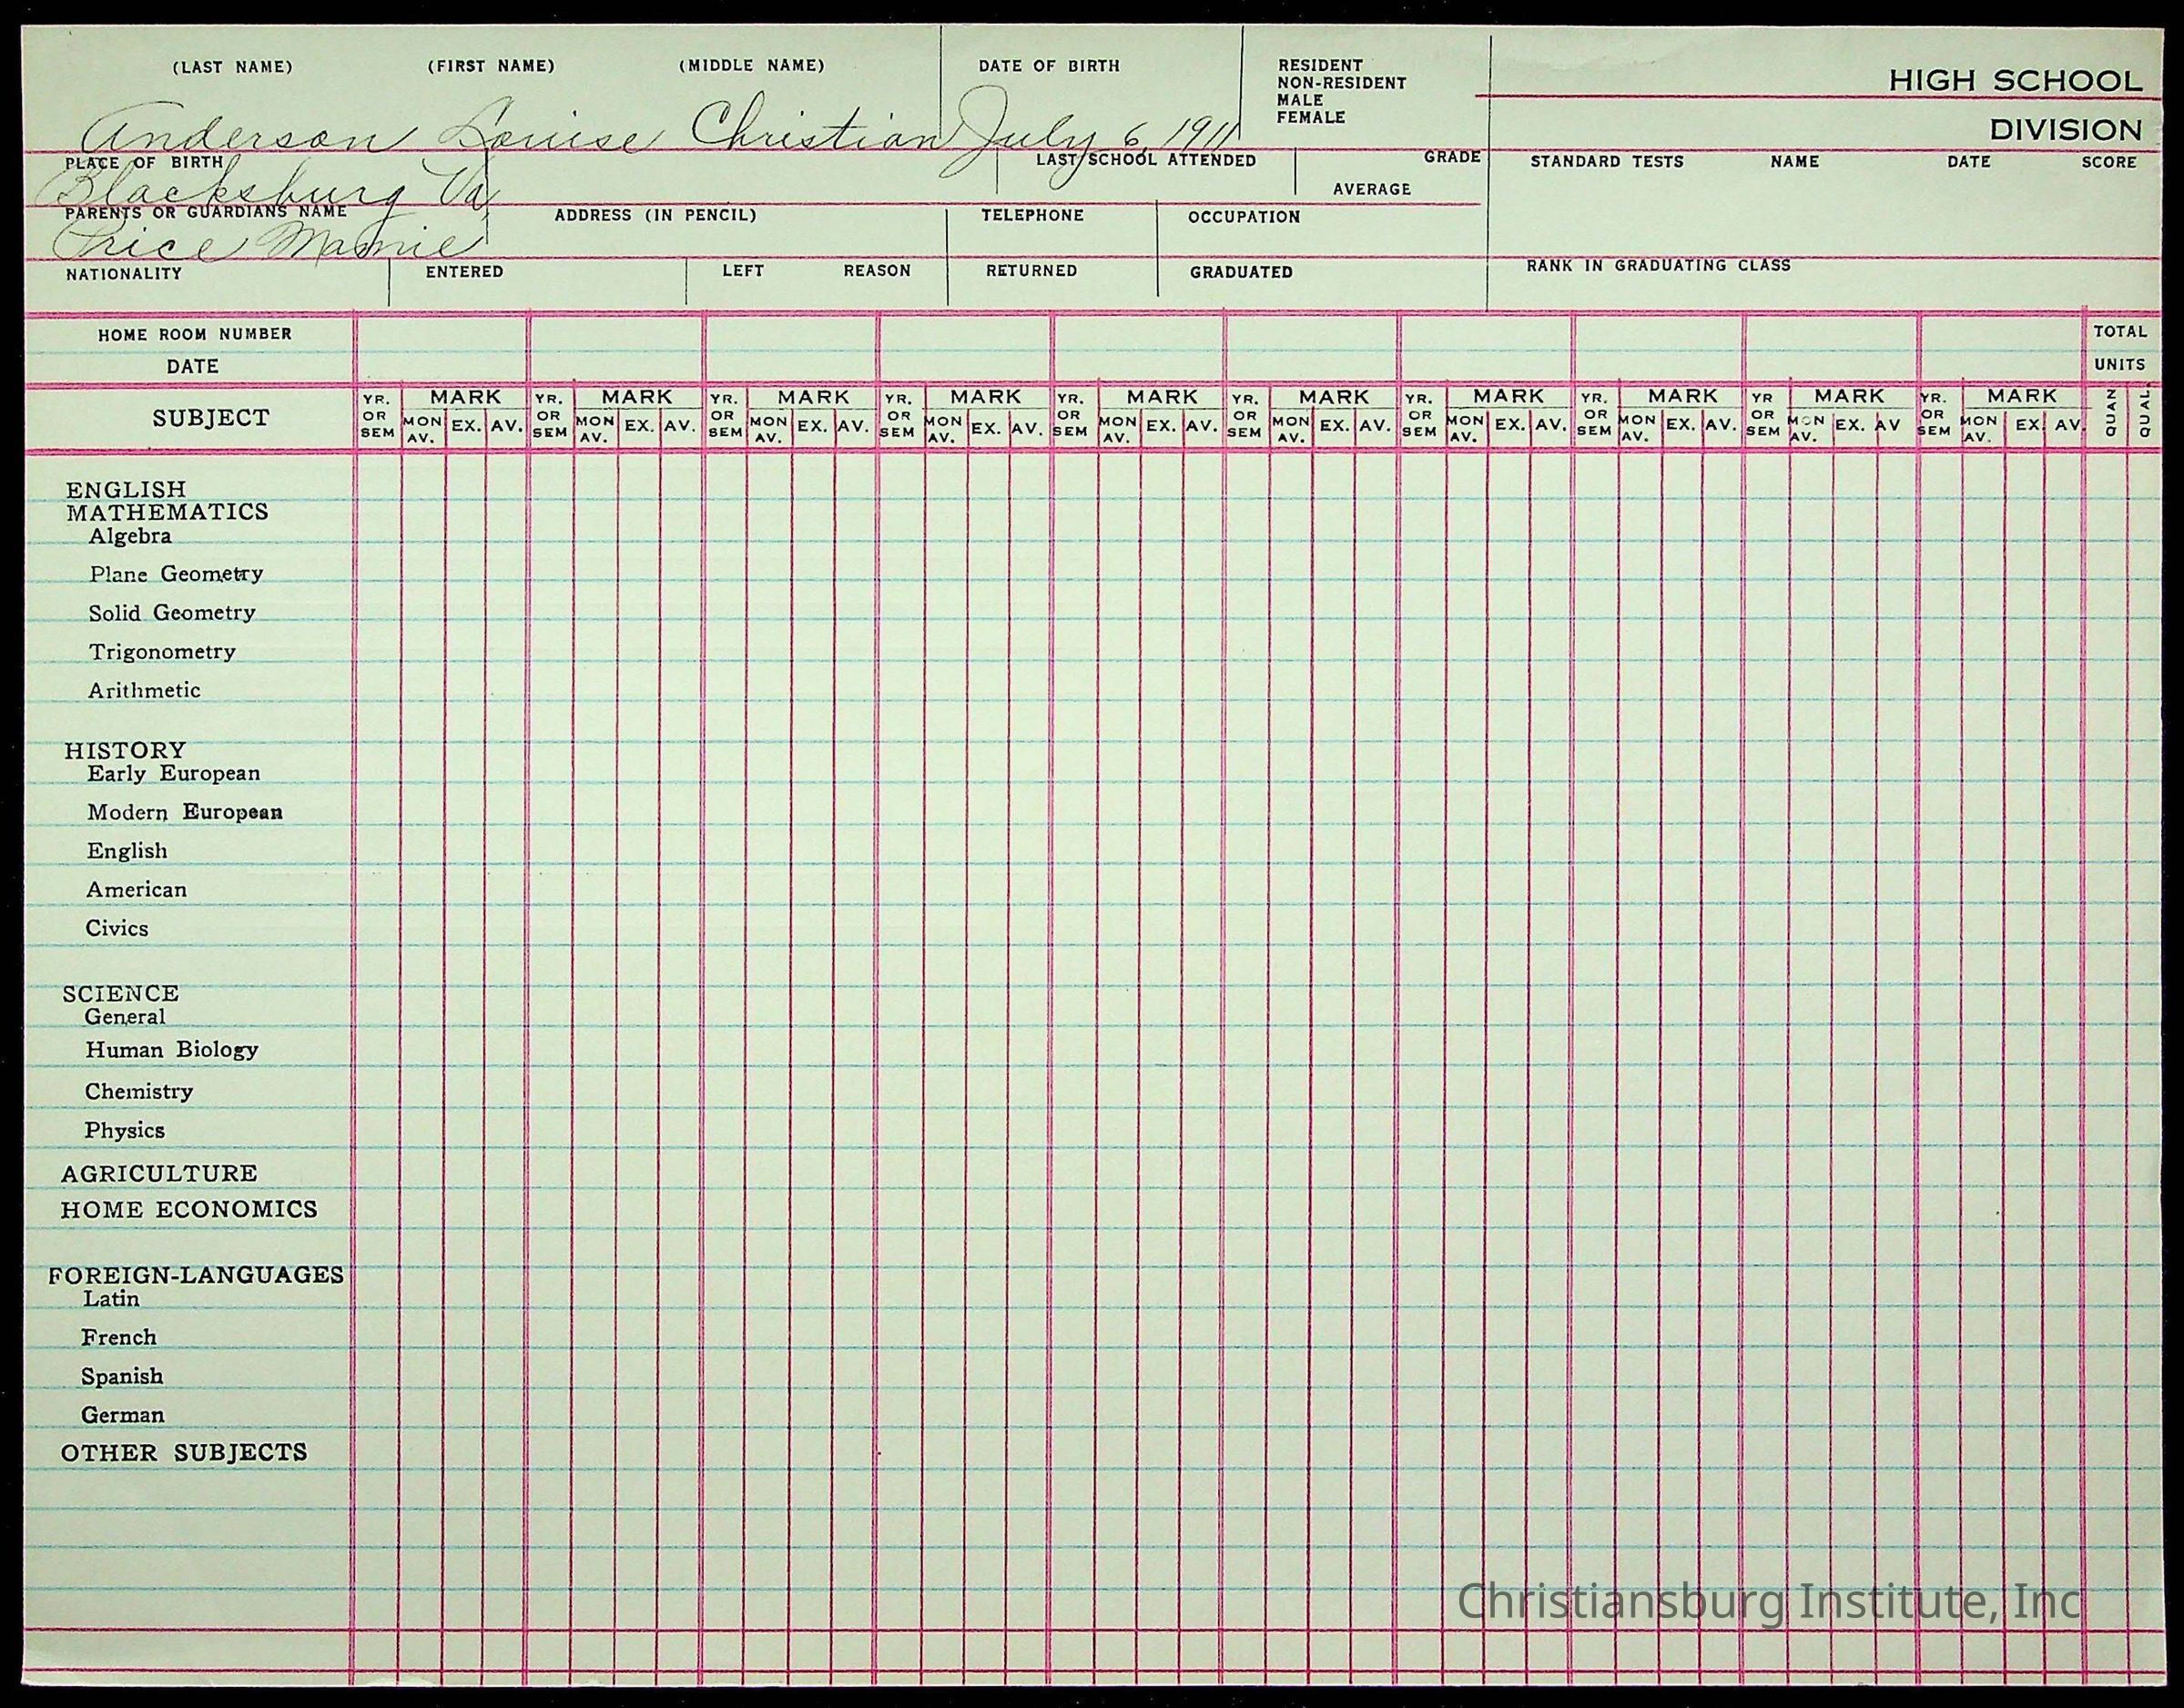 (LAST NAME) (FIRST NAME) (MIDDLE NAME) DATE OF BIRTH RESIDENT
NON-RESIDENT
MALE
FEMALE
HIGH SCHOOL
DIVISION
Anderson Louise Christian July 6, 1911
PLACE OF BIRTH LAST SCHOOL ATTENDED GRADE
AVERAGE
STANDARD TESTS NAME DATE SCORE
Blacksburg Va,
PARENTS OR GUARDIANS NAME ADDRESS (IN PENCIL) TELEPHONE OCCUPATION
Price Mamie
NATIONALITY ENTERED LEFT REASON RETURNED GRADUATED RANK IN GRADUATING CLASS
HOME ROOM NUMBER TOTAL
DATE UNITS
SUBJECT
YR. MARK YR. MARK YR. MARK YR. MARK YR. MARK YR. MARK YR. MARK YR. MARK YR MARK YR. MARK QUAN QUAL.
OR MON EX. AV. OR MON EX. AV. OR MON EX. AV. OR MON EX. AV. OR MON EX. AV. OR MON EX. AV. OR MON EX. AV. OR MON EX. AV. OR MON EX. AV OR MON EX. AV.
SEM AV. SEM AV. SEM AV. SEM AV. SEM AV. SEM AV. SEM AV. SEM AV. SEM AV. SEM AV.
ENGLISH
MATHEMATICS
Algebra
Plane Geometry
Solid Geometry
Trigonometry
Arithmetic
HISTORY
Early European
Modern European
English
American
Civics
SCIENCE
General
Human Biology
Chemistry
Physics
AGRICULTURE
HOME ECONOMICS
FOREIGN-LANGUAGES
Latin
French
Spanish
German
OTHER SUBJECTS
Christiansburg Institute, Inc